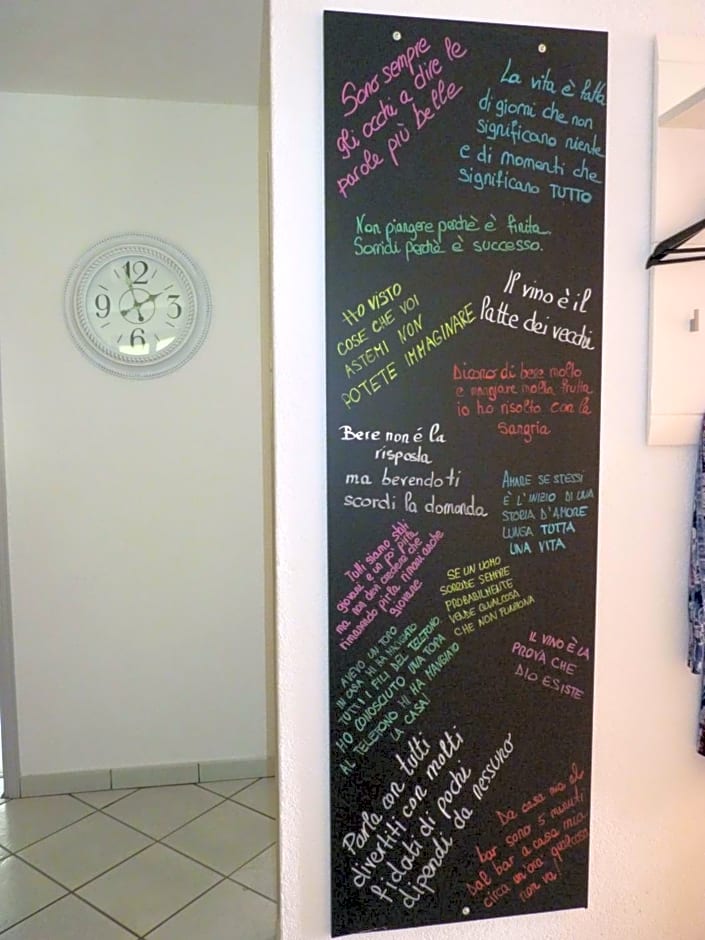 12
3
6
9
Sono sempre
gli occhi a dire le
parole più belle
La vita è fatta
di giorni che non
significano niente
e di momenti che
significano TUTTO
Non piangere perché è finita.
Sorridi perché è successo.
HO VISTO
COSE CHE VOI
ASTEMI NON
POTETE IMMAGINARE
Il vino è il
latte dei vecchi
Dicono di bere molto
e mangiare molta frutta
io ho risolto con la
sangria
Bere non é la
risposta
ma berendoti
scordi la domanda
AMARE SE STESSI
È L'INIZIO DI UNA
STORIA D'AMORE
LUNGA TUTTA
UNA VITA
Tutti siamo stati
giovani e un po' pirla
ma non devi credere che
rimanendo pirla rimani anche
giovane
SE UN UOMO
SORRIDE SEMPRE
PROBABILMENTE
VENDE QUALCOSA
CHE NON FUNZIONA
AVEVO UN TOPO
IN CASA MI HA MANGIATO
TUTTI I FILI DEL TELEFONO
HO CONOSCIUTO UNA TOPA
AL TELEFONO MI HA MANGIATO
LA CASA!
IL VINO È LA
PROVA CHE
DIO ESISTE
Parla con tutti
divertiti con molti
fidati di pochi
dipendi da nessuno
Da casa mia al
bar sono 5 minuti
Dal bar a casa mia
circa un'ora qualcosa
non va!